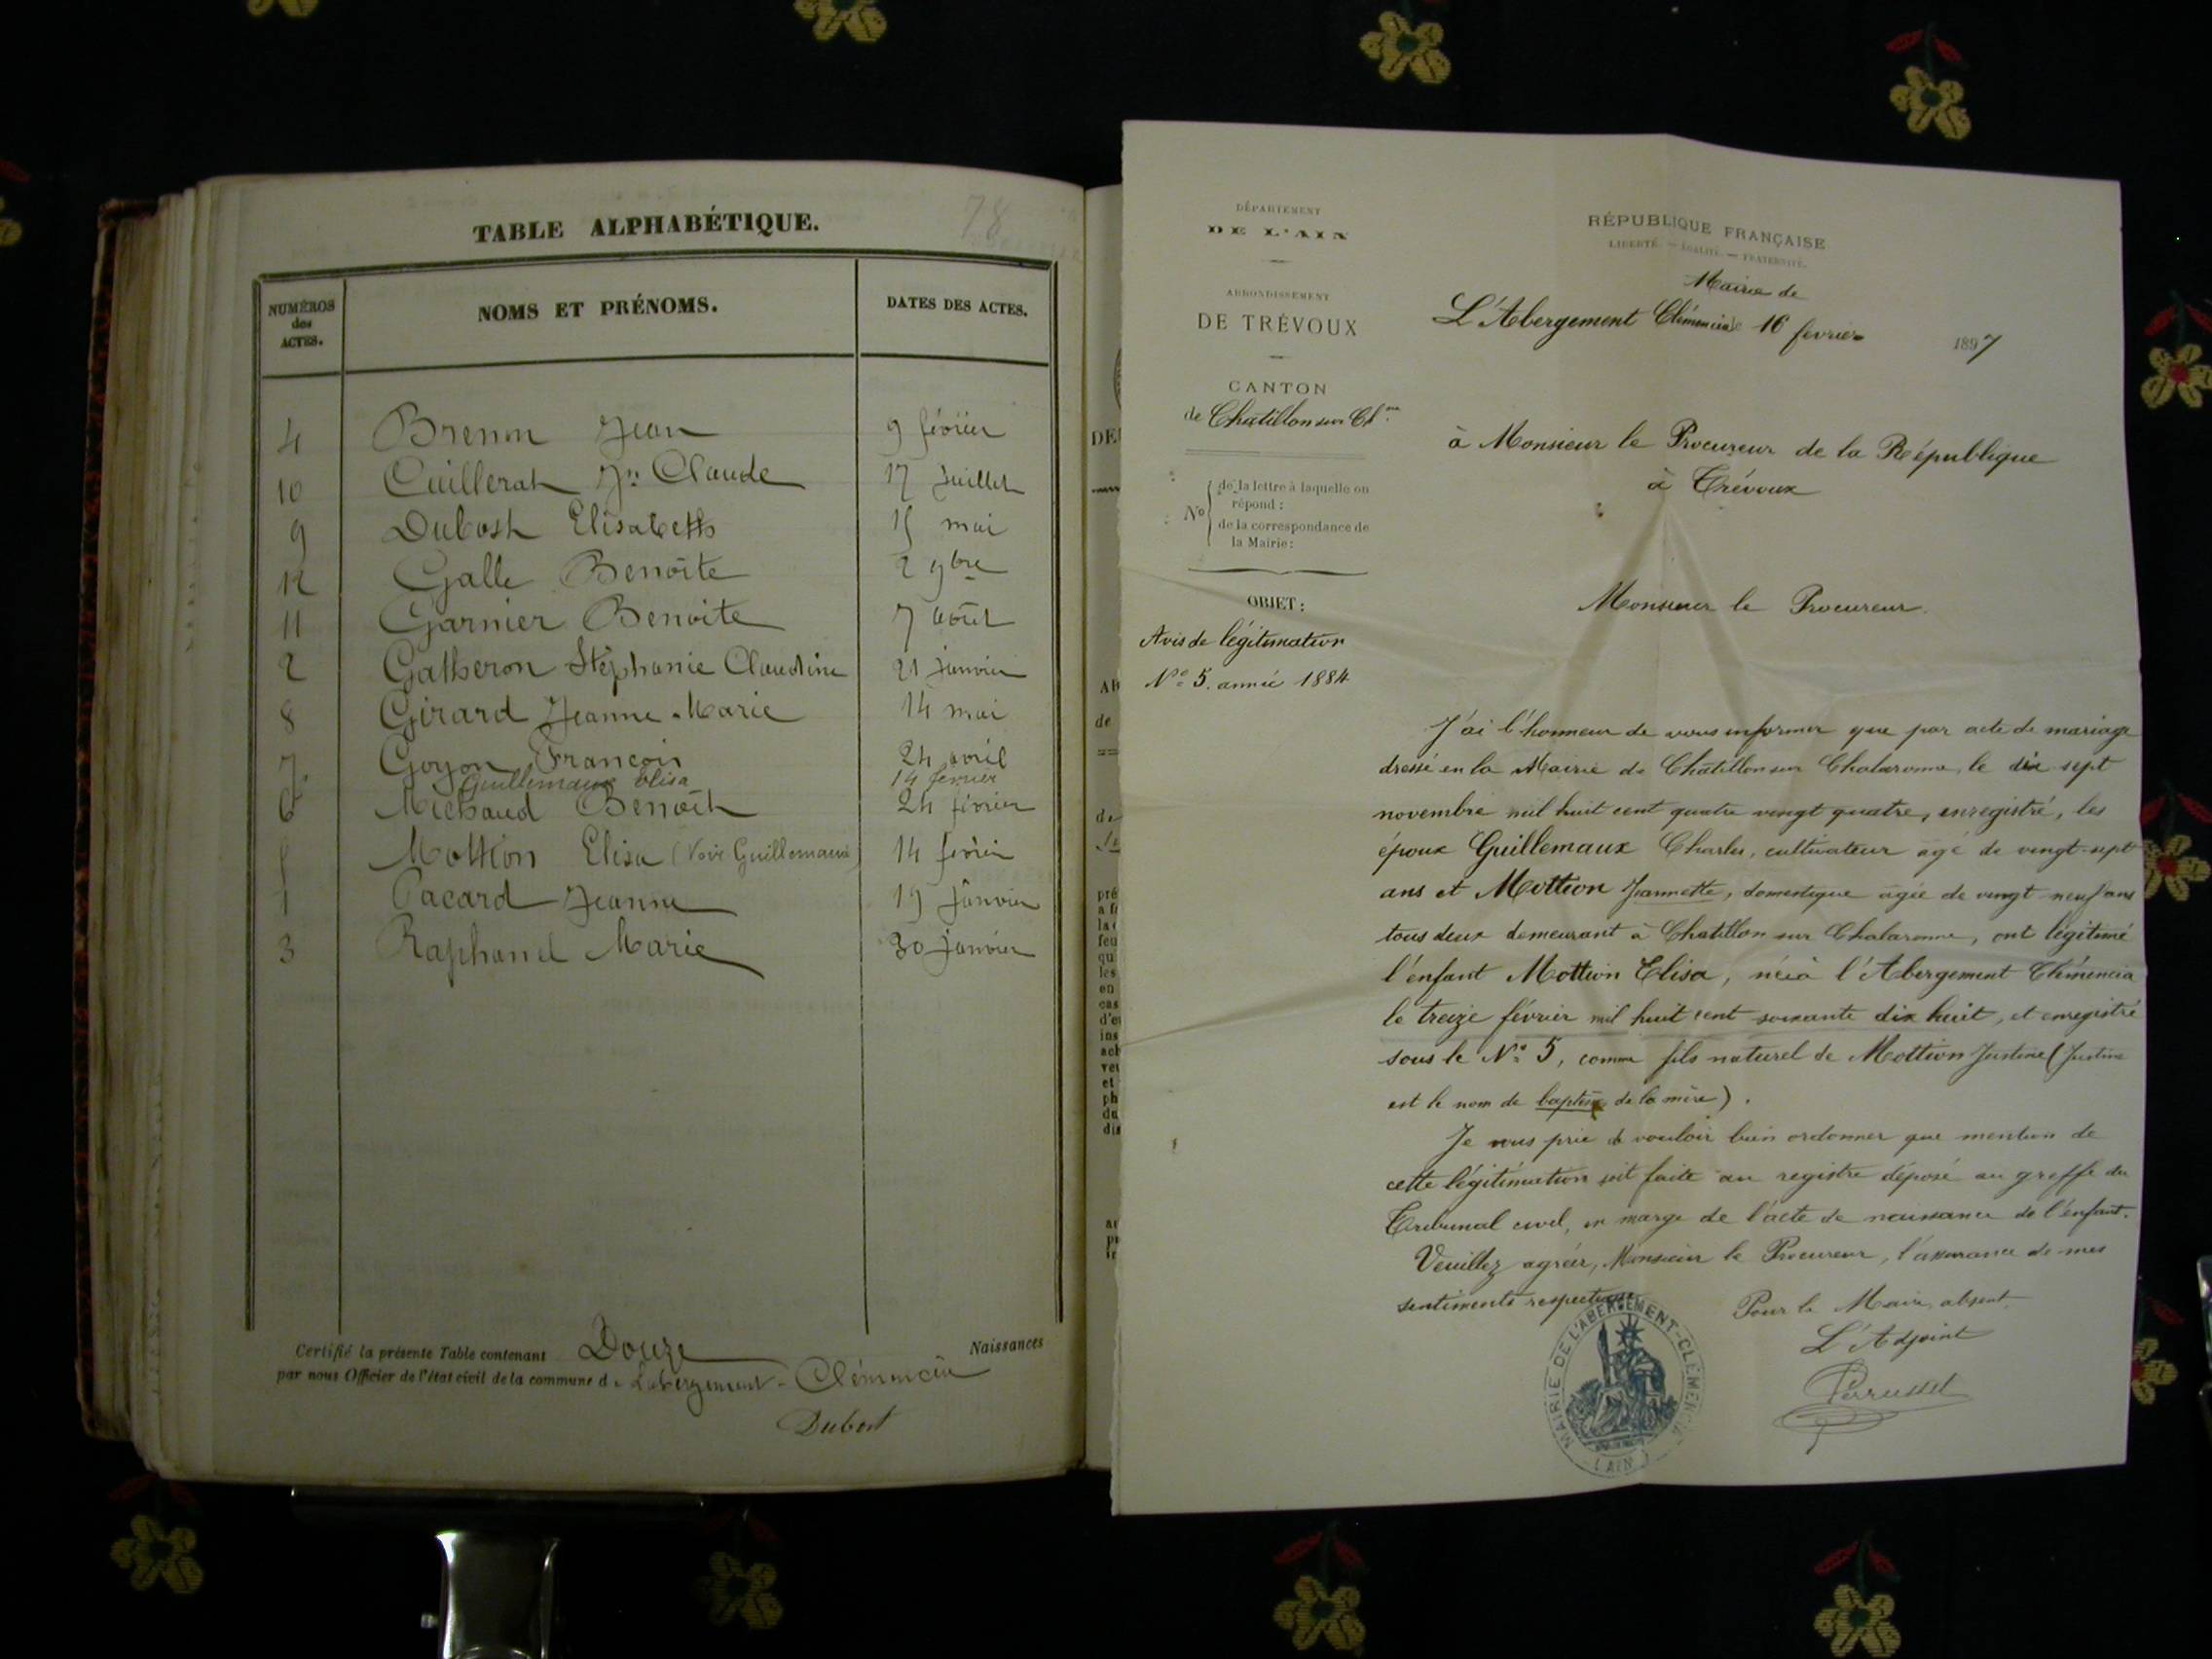 TABLE ALPHABÉTIQUE.
78
NUMÉROS des ACTES.
NOMS ET PRÉNOMS.
DATES DES ACTES.
4 Brenm Jean 9 février
10 Cuillerat Jn Claude 17 juillet
9 Dubost Elisabeth 15 mai
12 Galle Benoîte 2 9bre
11 Garnier Benoite 7 août
2 Gatheron Stéphanie Claudine 21 janvier
8 Girard Jeanne Marie 14 mai
7 Goyon François 24 avril
Guillemaux Elisa 14 fevrier
6 Michaud Benoît 24 février
5 Mottion Elisa (Voir Guillemaux) 14 février
1 Pacard Jeanne 19 janvier
3 Raphanel Marie 30 janvier
Certifié la présente Table contenant Douze Naissances
par nous Officier de l'état civil de la commune de Labergement-Clémencia
Dubost
DÉPARTEMENT
DE L'AIN
ARRONDISSEMENT
DE TRÉVOUX
CANTON
de Chatillon sur Ch.ne
No
de la lettre à laquelle on
répond :
de la correspondance de
la Mairie :
OBJET :
Avis de légitimation
No 5. année 1884
RÉPUBLIQUE FRANÇAISE
LIBERTÉ — ÉGALITÉ — FRATERNITÉ.
Mairie de
L'Abergement Clémencia le 16 fevrier 1897
à Monsieur le Procureur de la République
à Trévoux
Monsieur le Procureur.
J'ai l'honneur de vous informer que par acte de mariage
dressé en la Mairie de Chatillon sur Chalaronne, le dix sept
novembre mil huit cent quatre vingt quatre, enregistré, les
époux Guillemaux Charles, cultivateur âgé de vingt-sept
ans et Mottion Jeannette, domestique âgée de vingt neuf ans
tous deux demeurant à Chatillon sur Chalaronne, ont légitimé
l'enfant Mottion Elisa, née à l'Abergement Clémencia
le treize février mil huit cent soixante dix huit, et enregistré
sous le No 5, comme fils naturel de Mottion Justine (Justine
est le nom de baptême de la mère).
Je vous prie de vouloir bien ordonner que mention de
cette légitimation soit faite au registre déposé au greffe du
Tribunal civil, en marge de l'acte de naissance de l'enfant.
Veuillez agréer, Monsieur le Procureur, l'assurance de mes
sentiments respectueux
Pour le Maire absent
L'Adjoint
Perrusset
MAIRIE DE L'ABERGEMENT-CLÉMENCIA
(AIN)